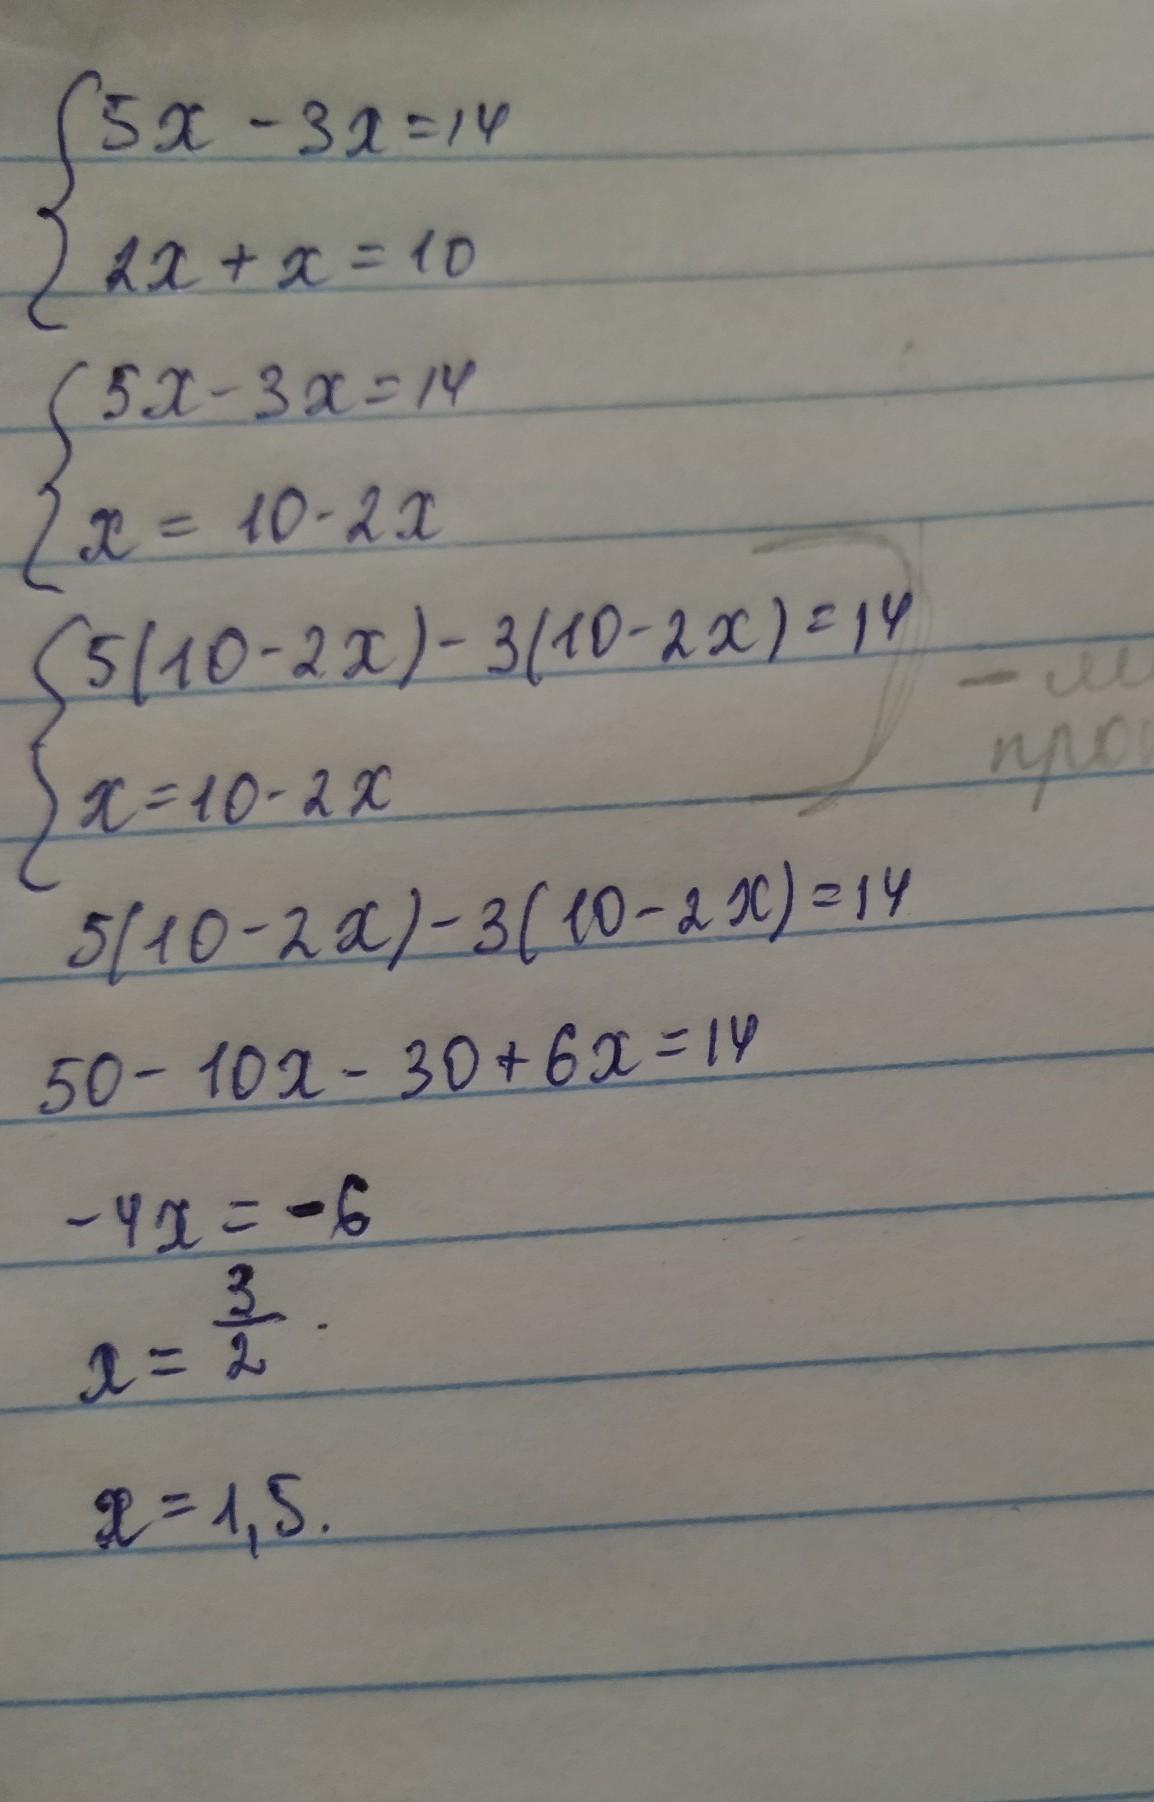 5x - 3x = 14
2x + x = 10
5x - 3x = 14
x = 10 - 2x
5(10 - 2x) - 3(10 - 2x) = 14
x = 10 - 2x
5(10 - 2x) - 3(10 - 2x) = 14
50 - 10x - 30 + 6x = 14
-4x = -6
x = 3/2.
x = 1,5.